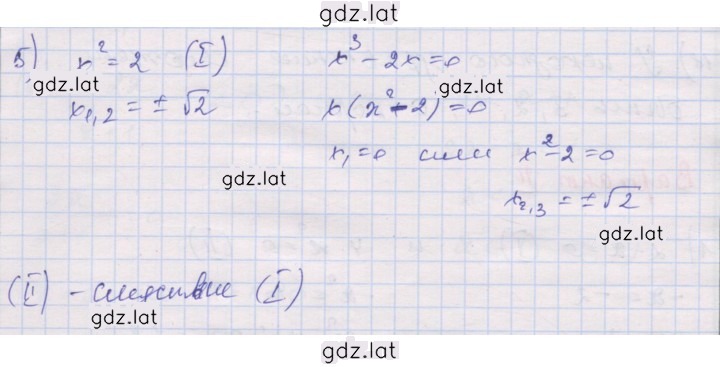 gdz.lat
5) x² = 2 (I) x³ - 2x = 0
gdz.lat
x₁,₂ = ± √2 x(x² - 2) = 0
gdz.lat
x₁ = 0 или x² - 2 = 0
gdz.lat
x₂,₃ = ± √2
gdz.lat
(II) - следствие (I)
gdz.lat
gdz.lat